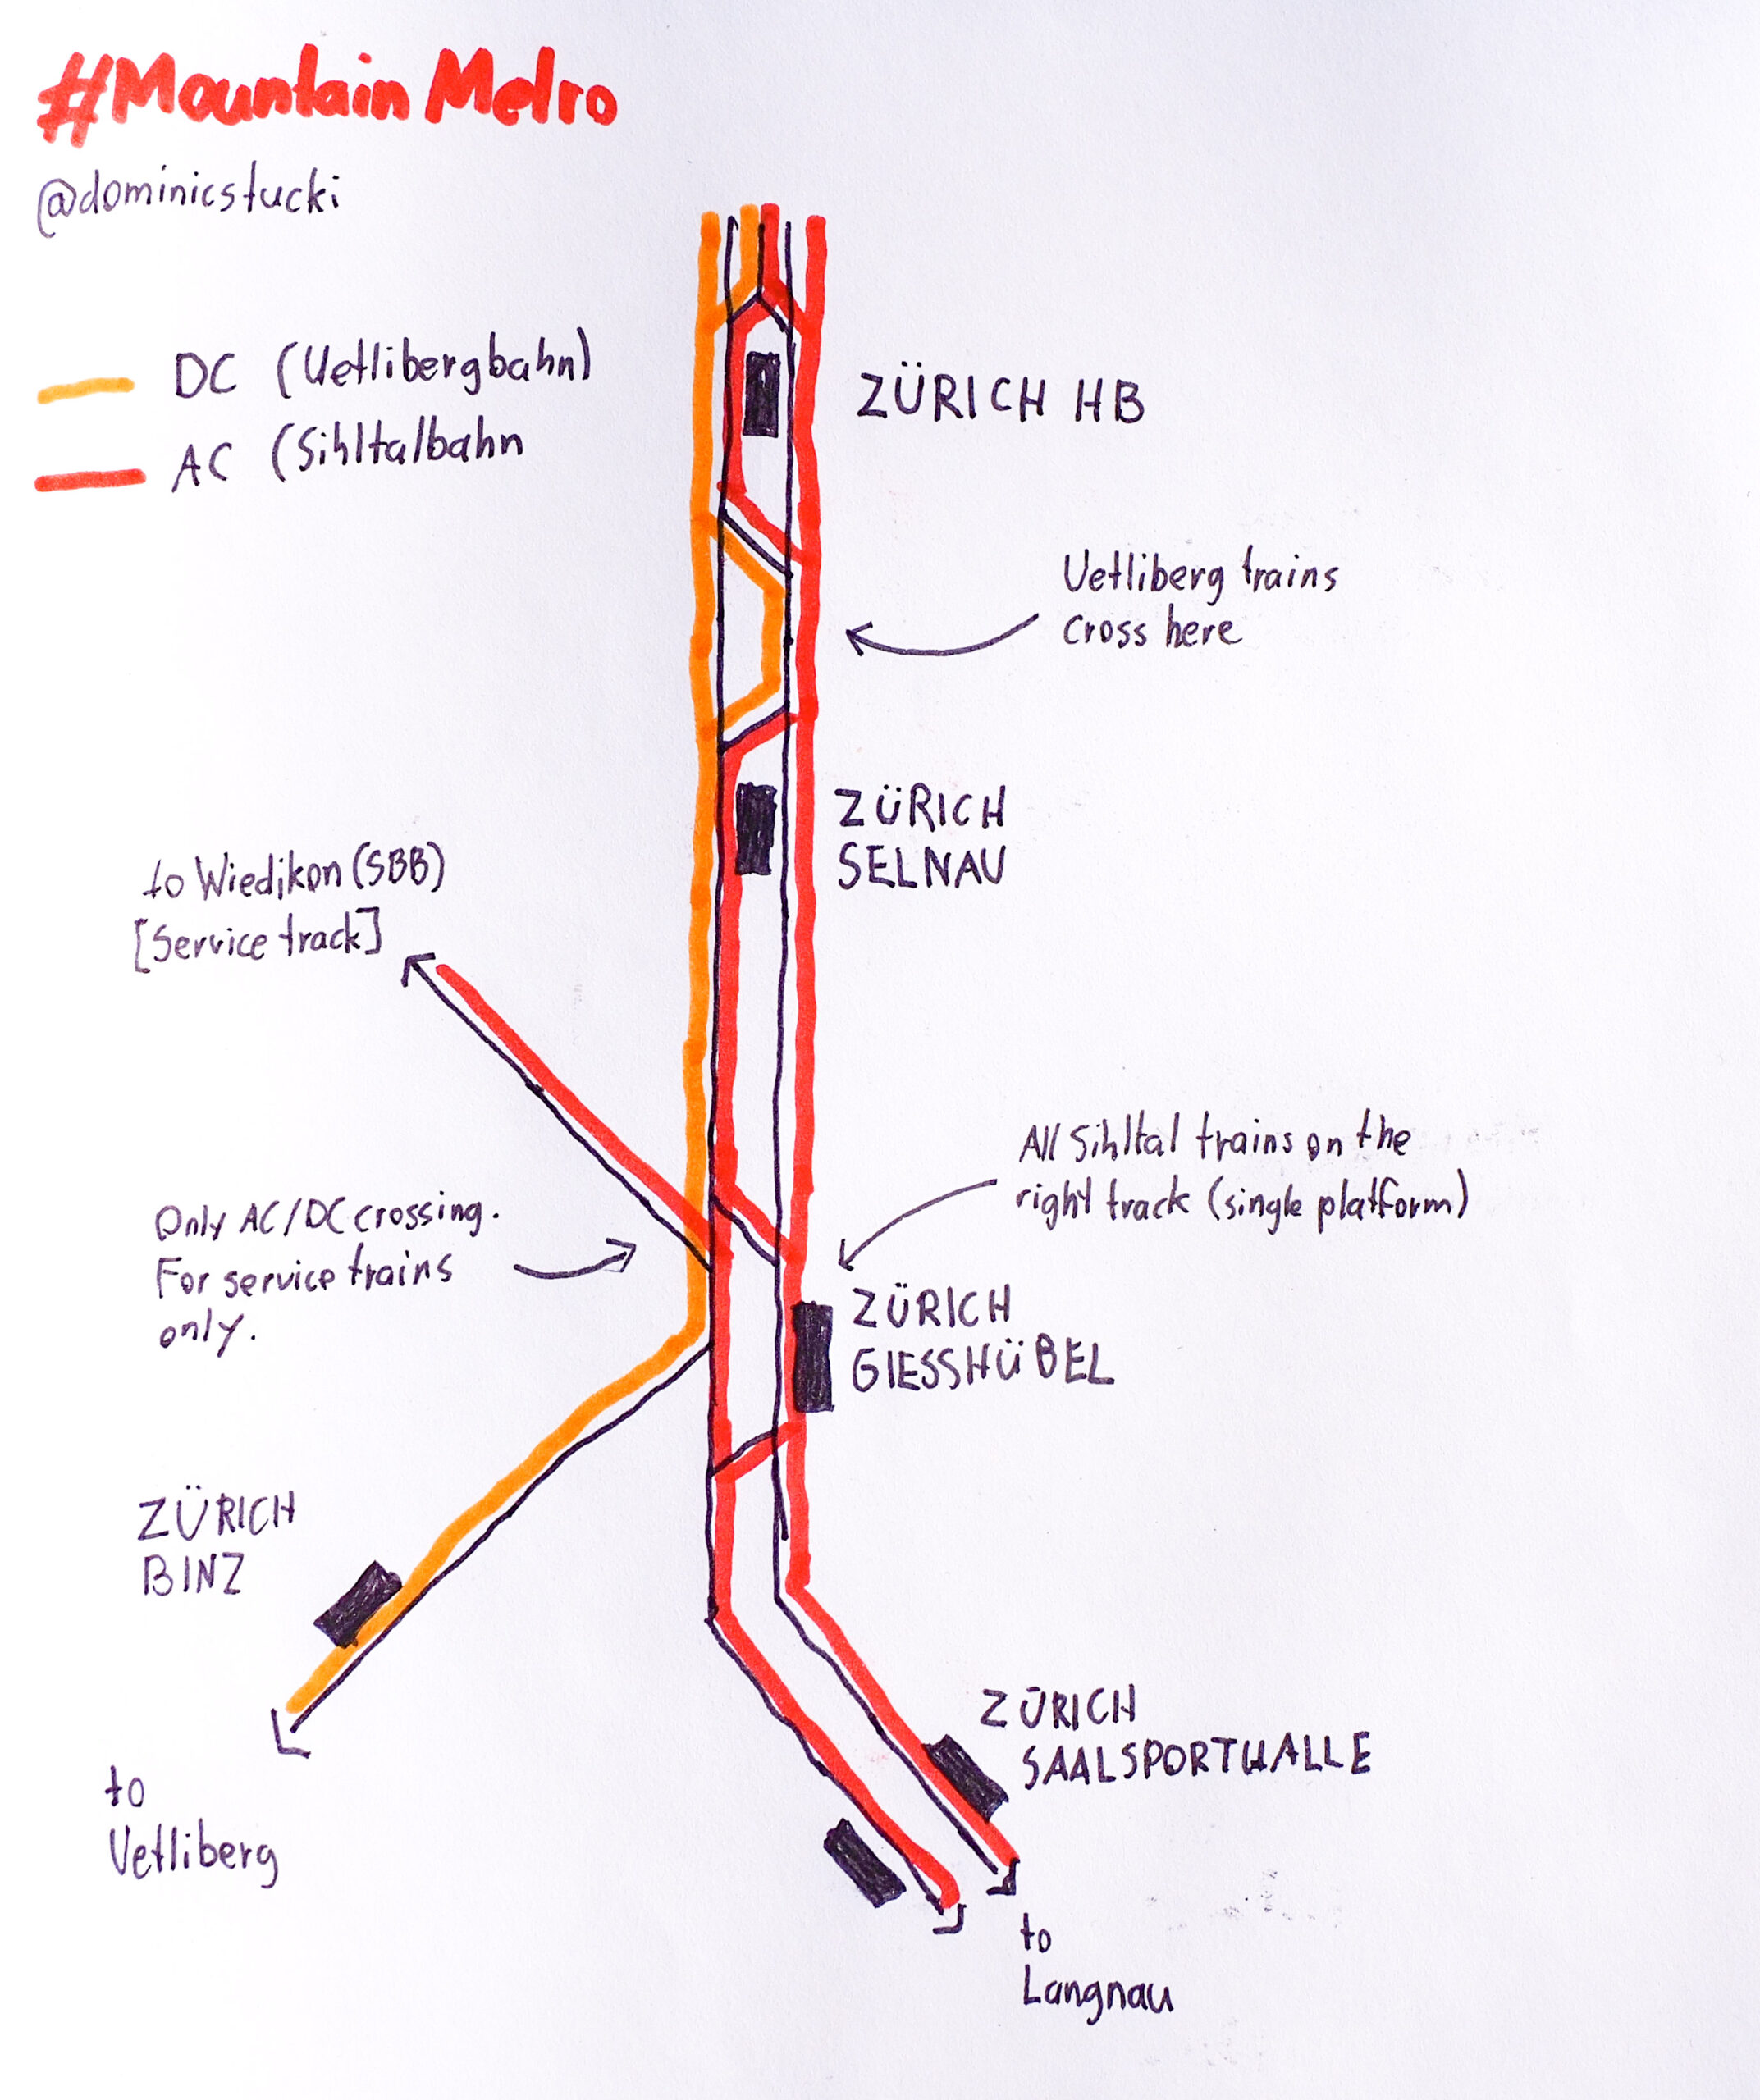 #Mountain Metro
@dominicstucki
DC (Uetlibergbahn)
AC (Sihltalbahn
ZÜRICH HB
Uetliberg trains
cross here
ZÜRICH
SELNAU
to Wiedikon (SBB)
[Service track]
All Sihltal trains on the
right track (single platform)
Only AC/DC crossing.
For service trains
only.
ZÜRICH
GIESSHÜBEL
ZÜRICH
BINZ
ZÜRICH
SAALSPORTHALLE
to
Uetliberg
to
Langnau